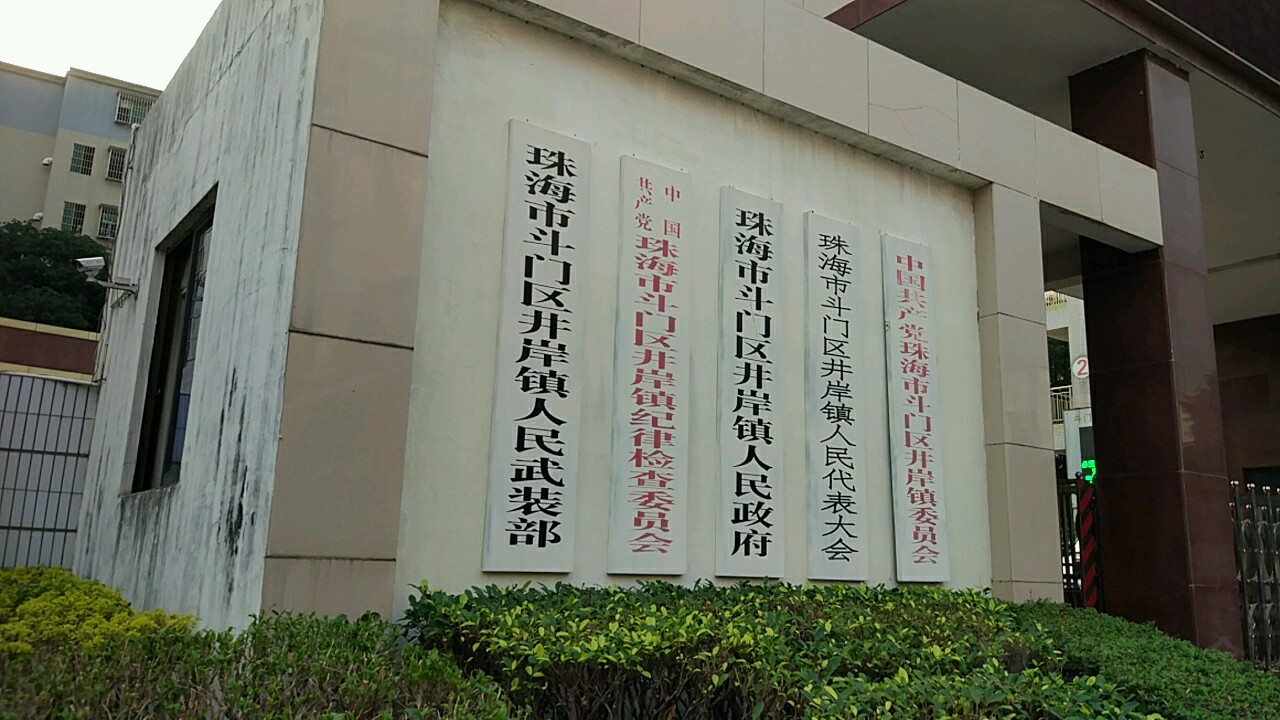 珠海市斗门区井岸镇人民武装部
中国
共产党
珠海市斗门区井岸镇纪律检查委员会
珠海市斗门区井岸镇人民政府
珠海市斗门区井岸镇人民代表大会
中国共产党珠海市斗门区井岸镇委员会
2